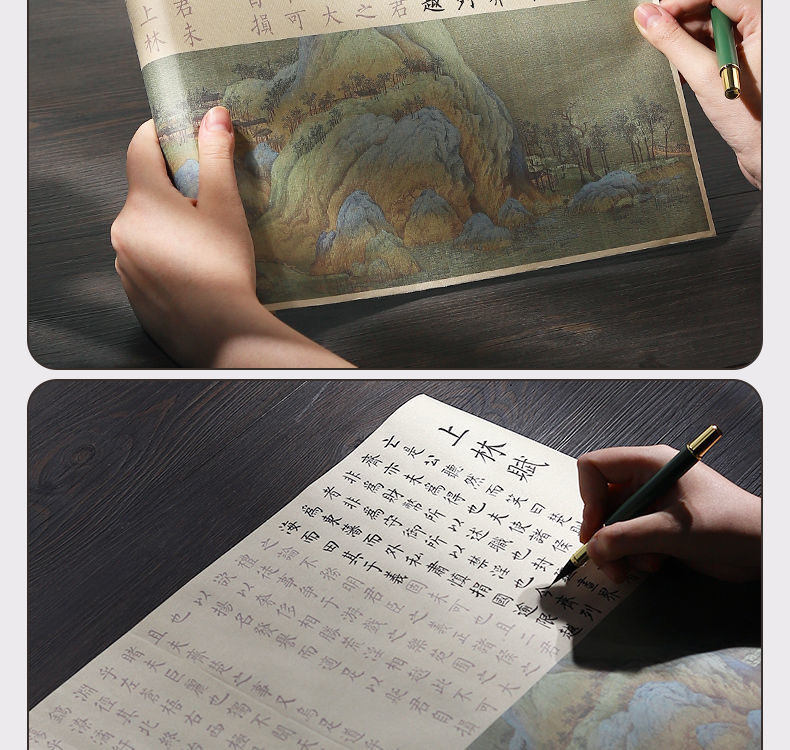 君未
上林
損
可
大
之
君
越
列
上林賦
亡是公聽然而笑曰楚
齊亦未為得也夫使諸侯
非為財幣所以述職也封
者非為守御所以禁淫也今齊列
為東藩而外私肅慎捐國踰限越
海而田其于義固未可也且二君
之論不務明君臣之義正諸侯之
禮徒事爭于游戲之樂苑囿之大
欲以奢侈相勝荒淫相越此不可
以揚名發譽而適足以貶君自損
也且夫齊楚之事又烏足道乎